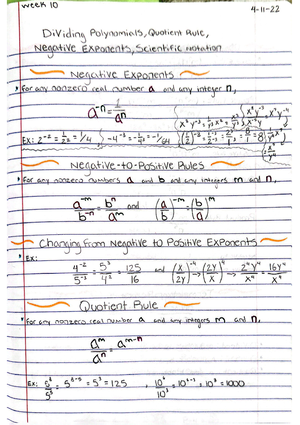 Week 10
4-11-22
Dividing Polynomials, Quotient Rule,
Negative Exponents, Scientific Notation
Negative Exponents
• For any nonzero real number a and any integer n,
a⁻ⁿ = 1/aⁿ
Ex: 2⁻² = 1/2² = 1/4
-4⁻³ = -1/4³ = -1/64
Negative-to-Positive Rules
• For any nonzero numbers a and b and any integers m and n,
a⁻ᵐ/b⁻ⁿ = bⁿ/aᵐ and (a/b)⁻ᵐ = (b/a)ᵐ
Changing From Negative to Positive Exponents
• Ex:
4⁻²/5⁻³ = 5³/4² = 125/16 and (x/2y)⁻⁴ → (2y/x)⁴ → 2⁴y⁴/x⁴ = 16y⁴/x⁴
Quotient Rule
• For any nonzero real number a and any integers m and n,
aᵐ/aⁿ = aᵐ⁻ⁿ
Ex: 5⁸/5⁵ = 5⁸⁻⁵ = 5³ = 125 , = 10³ = 1000